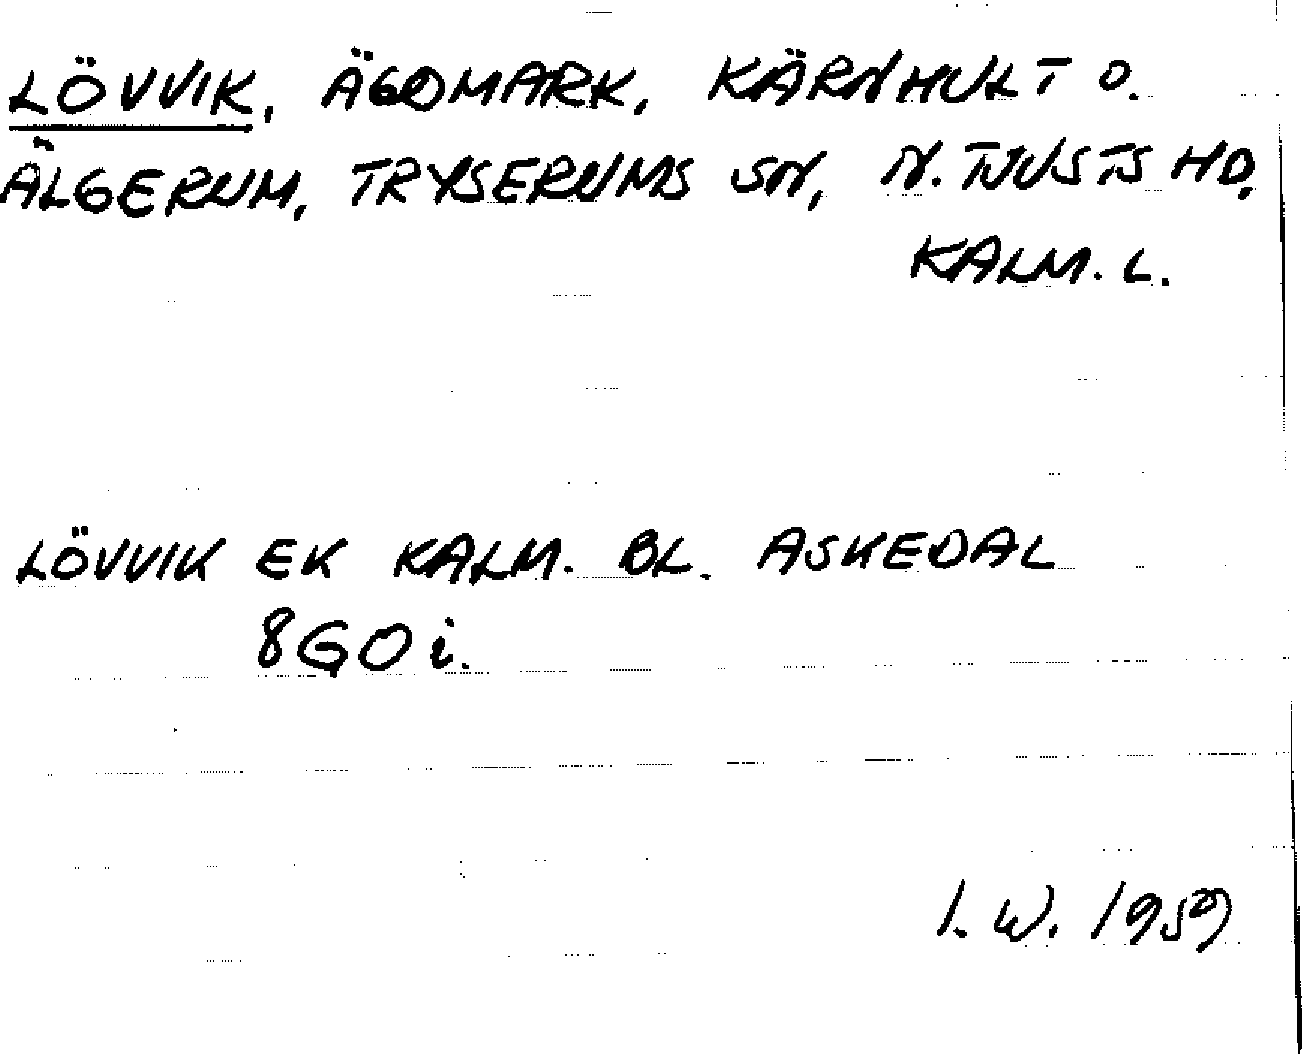 LÖVVIK, ÄGOMARK, KÄRNHULT O.
ÄLGERUM, TRYSERUMS SN, N. TJUSTS HD,
KALM. L.
LÖVVIK EK KALM. BL. ASKEDAL
8G0i.
I. W. 1959